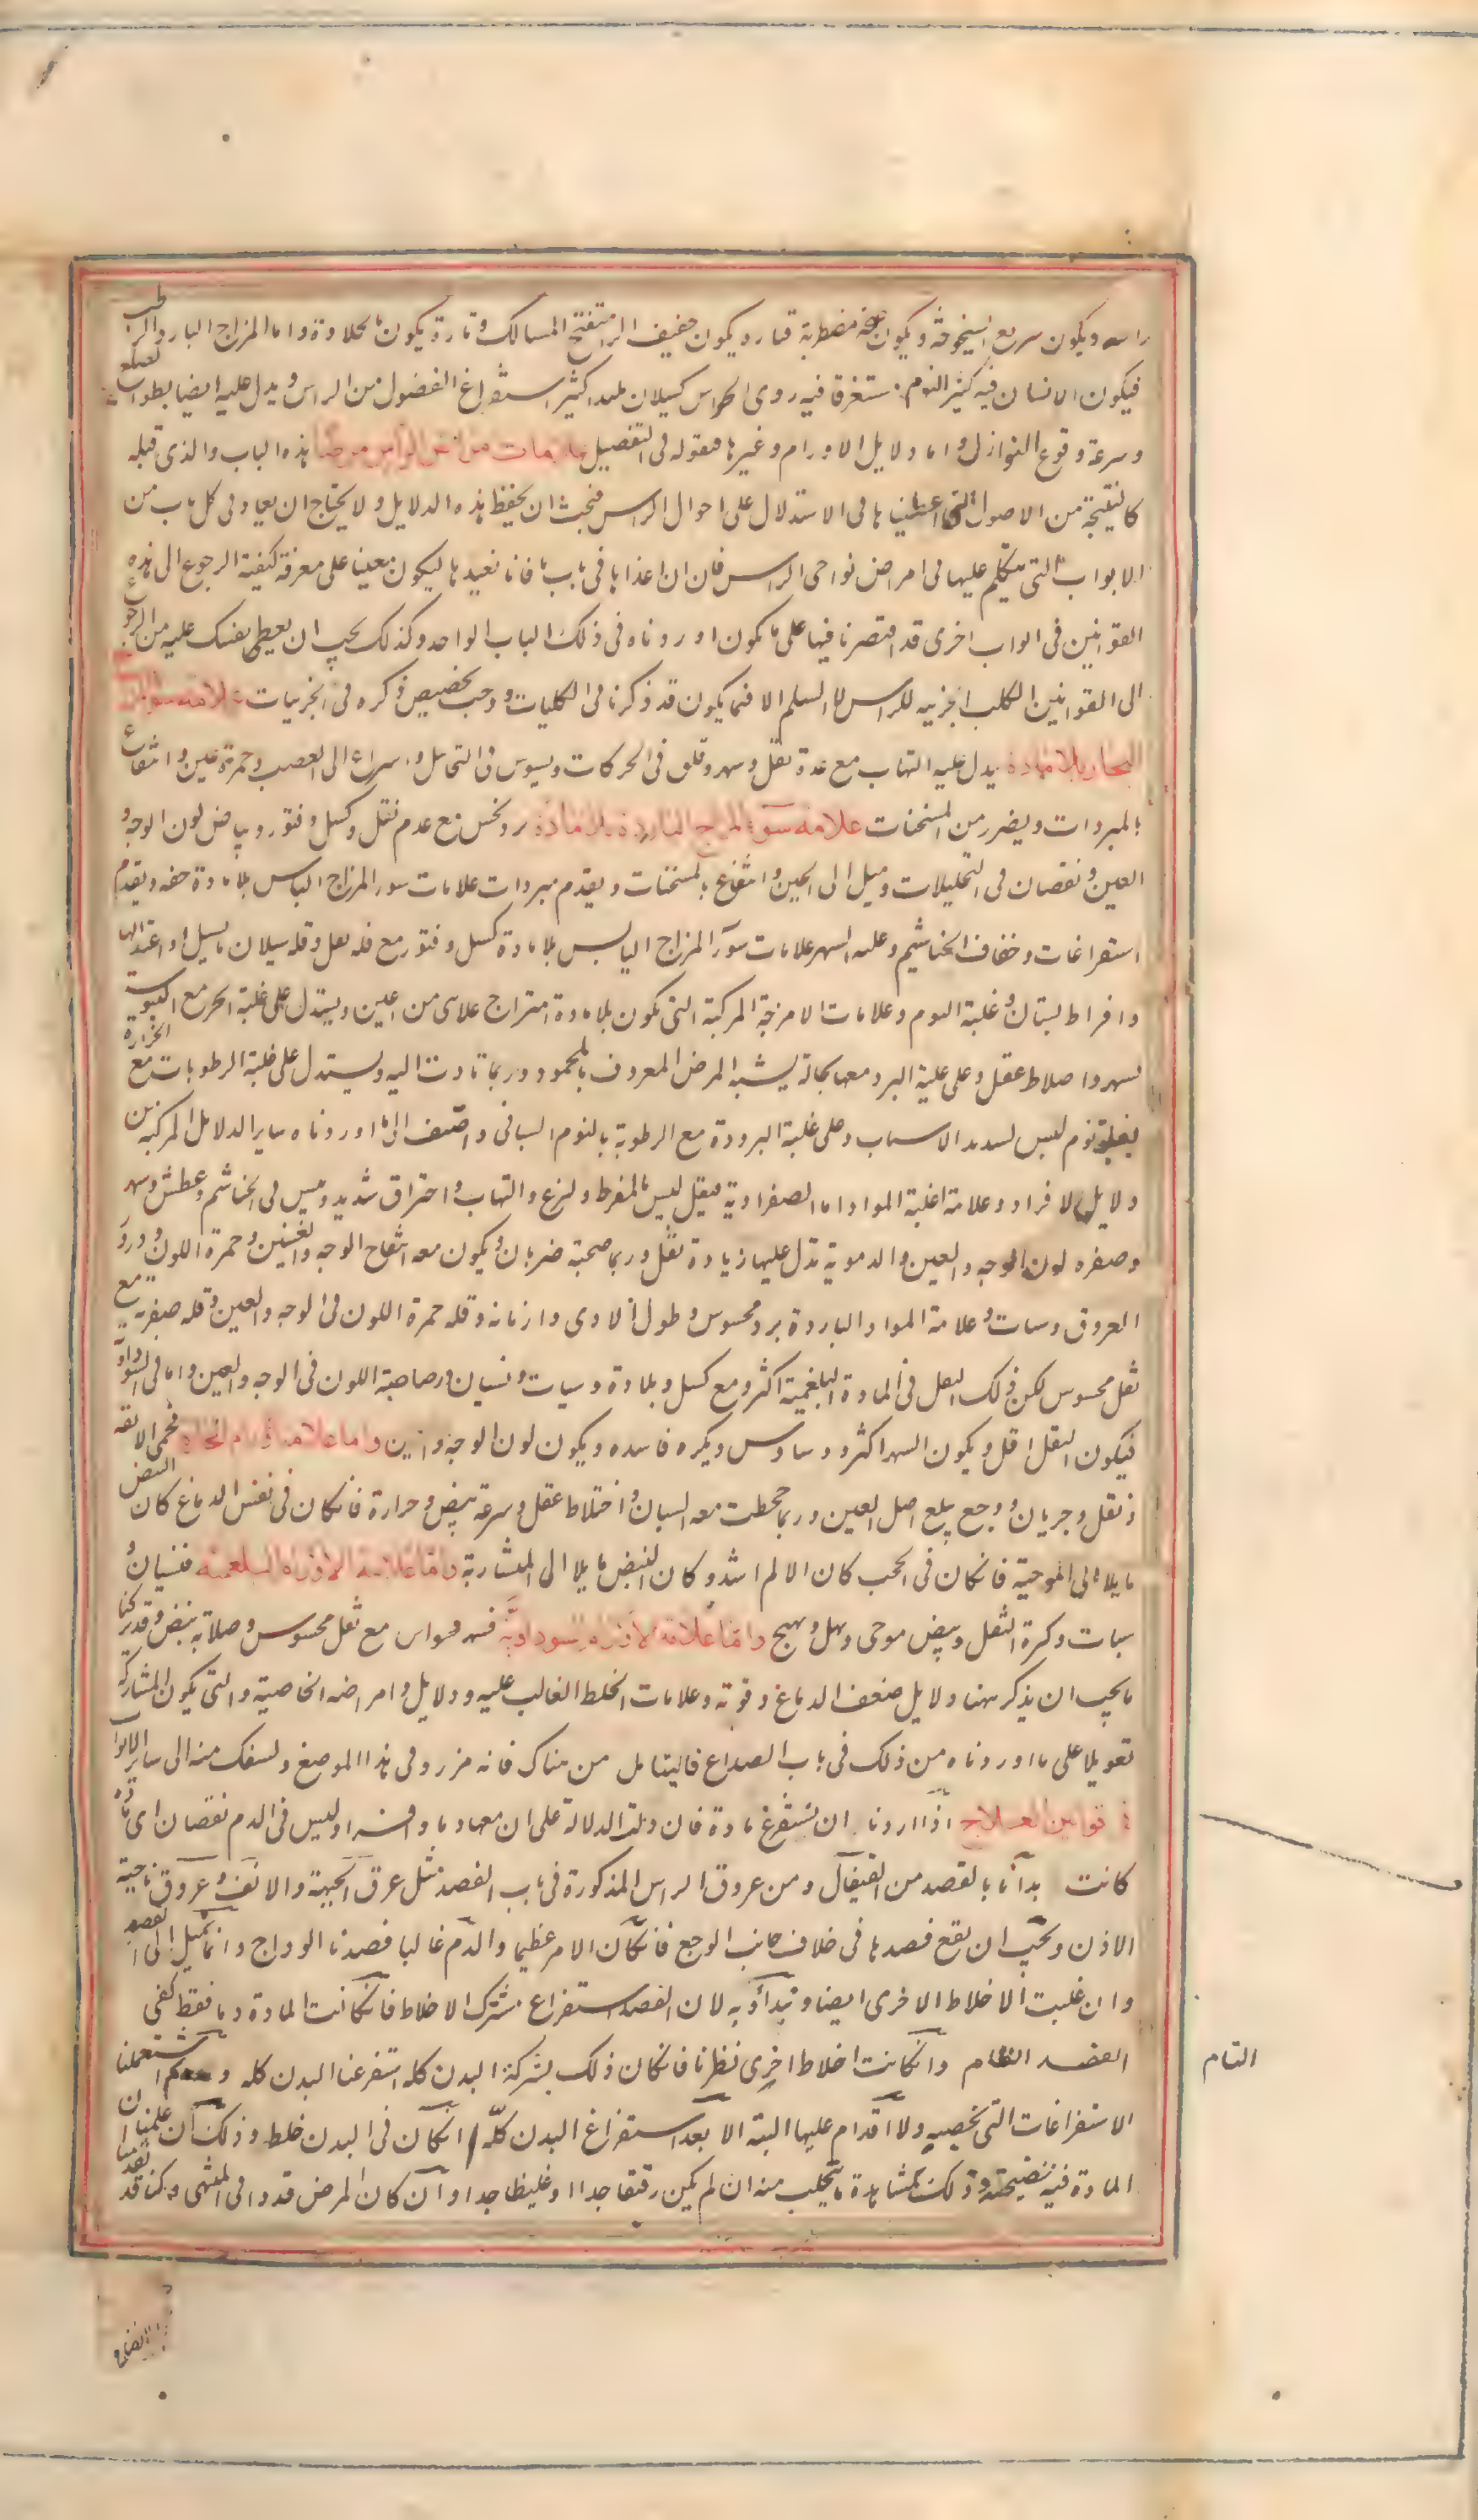 راسه ويكون سريع الشيخوخة ويكون صحته مضطربة فتارة يكون خفيف الراس متفتح المسالك وتارة يكون بالخلاف واما المزاج البارد الرطب
فيكون الانسان فيه كثير النوم مستغرقا فيه ردى الحواس كسلان بليدا كثير استفراغ الفضول من الراس ويدل عليه ايضا بطو الصلع
وسرعة وقوع النوازل واما دلايل الاورام وغيرها فنقوله فى التفصيل علامات مرض الراس مرضا هذه الباب والذى قبله
كالنتيجة من الاصول التى اعطيناها فى الاستدلال على احوال الراس فيجب ان يحفظ هذه الدلايل ولا يحتاج ان يعاد فى كل باب من
الابواب التى نتكلم عليها فى امراض نواحى الراس فان اعدناها فى باب ما فانا نعيدها ليكون معينا على معرفة كيفية الرجوع الى هذه
القوانين فى ابواب اخرى قد اقتصرنا فيها على ما يكون اوردناه فى ذلك الباب الواحد وكذلك يجب ان يعطى نفسك عليه من الرجوع
الى القوانين الكلية الجزيه للراس السلم الا فيما يكون قد ذكرنا فى الكليات ووجب تخصيص ذكره فى الجزييات علامة سو المزاج
الحار بلا مادة يدل عليه التهاب مع عدم ثقل وسهر وقلق فى الحركات وتشوش فى التخايل واسراع الى الغضب وحمرة عين وانتفاع
بالمبردات ويضرر من المسخنات علامة سوء المزاج البارد بلا مادة برد يحس مع عدم ثقل وكسل وفتور وبياض لون الوجه و
العين ونقصان فى التخيلات وميل الى الجبن وانتفاع بالمسخنات ويقدم مبردات علامات سو المزاج اليابس بلا مادة خفه ويقدم
استفراغات وجفاف الخياشيم وغلبه السهر علامات سوء المزاج اليابس بلا مادة كسل وفتور مع قله ثقل وقله سيلان ما يسيل او اعتدالها
وافراط نسيان وغلبة النوم وعلامات الامزجة المركبة التى يكون بلا مادة امتزاج علامتى من اعين ويستدل على غلبة الحر مع اليبوسة
بسهر واختلاط عقل وعلى غلبة البرد معها بحالة يشبه المرض المعروف بالجمود وربما تادت اليه ويستدل على غلبة الرطوبات مع الحرارة
بغلبة نوم ليس بشديد الاسبات وعلى غلبة البرودة مع الرطوبة بالنوم السباتى واضف الى ما اوردناه ساير الدلايل المركبة من
دلايل الافراد وعلامة اغلبة المواد اما الصفراوية فبثقل ليس بالمفرط ولذع والتهاب واحتراق شديد ويبس فى الخياشيم وعطش وسهر
وصفره لون الوجه والعين والدموية تدل عليها زيادة ثقل وربما صحبة ضربان ويكون معه انتفاخ الوجه والعينين وحمرة اللون ودرور
العروق وسبات وعلامة المواد الباردة برد محسوس وطول الاذى وازمانه وقله حمرة اللون فى الوجه والعين وقله صفرته مع
ثقل محسوس لكن ذلك الثقل فى المادة البلغمية اكثر ومع كسل وبلادة وسبات ونسيان ورصاصية اللون فى الوجه والعين واما فى السوداوية
فيكون الثقل اقل ويكون السهر اكثر ووساوس وفكره فاسده ويكون لون الوجه والعين واما علامة الاورام الحارة فحمى لازمة
وثقل وجريان ووجع يبلغ اصل العين وربما جحظت معه العينان واختلاط عقل وسرعة نبض وحرارة فان كان فى نفس الدماغ كان النبض
مايلا الى الموجية فان كان فى الحجب كان الالم اشد وكان النبض مايلا الى المنشارية واما علامة الاورام البلغمية فنسيان و
سبات وكثرة الثقل ونبض موجى وتهيج واما علامة الاورام السوداوية فسهر ووسواس مع ثقل محسوس وصلابة نبض وقد تركنا
ما يجب ان يذكر ههنا ودلايل ضعف الدماغ وقوته وعلامات الخلط الغالب عليه ودلايل وامراضه الخاصية والتى يكون بالمشاركة
تعويلا على ما اوردناه من ذلك فى باب الصداع فاليتامل من هناك فانه مزر وفى هذا الموضع ولسفك منه الى ساير الابواب
فى قوانين العلاج اذا اردنا ان نستفرغ مادة فان دلت الدلالة على ان معها دما وافرا وليس فى الدم نقصان اى مادة
كانت بدأنا بالفصد من القيفال ومن عروق الراس المذكورة فى باب الفصد مثل عرق الجبهة والانف وعروق ناحية
الاذن ويجب ان يقع فصدها فى خلاف جانب الوجع فان كان الامر عظيما والدم غالبا فصدنا الوداج وانما نميل الى الفصد
وان غلبت الاخلاط الاخرى ايضا ونبدأ به لان الفصد استفراغ مشترك الاخلاط فان كانت المادة دما فقط كفى
الفصد التام وان كانت اخلاط اخرى نظرنا فان كان ذلك بشركة البدن كله استفرغنا البدن كله و ثم استعملنا
التام
الاستفراغات التى يخصه ولا اقدام عليها البتة الا بعد استفراغ البدن كلّه ان كان فى البدن خلط وذلك ان علمنا ان
المادة فيه نضيجة وذلك بمشاهدة ما يتحلب منه ان لم يكن رقيقا جدا او غليظا جدا وان كان المرض قد وافى المنتهى وكنا قد تقدمنا